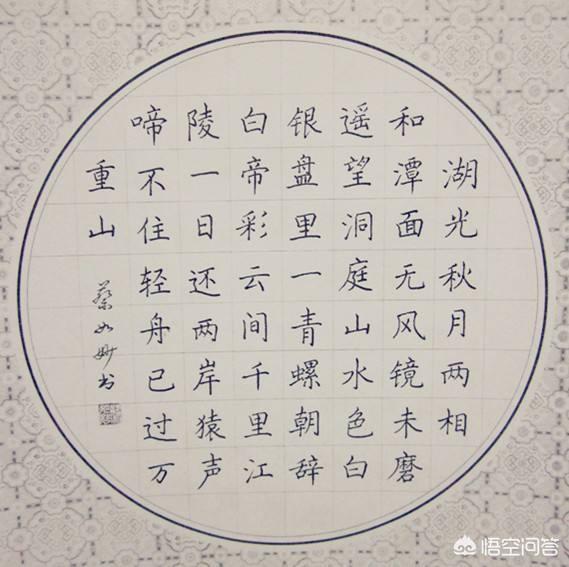 湖光秋月两相
和潭面无风镜未磨
遥望洞庭山水色白
银盘里一青螺朝辞
白帝彩云间千里江
陵一日还两岸猿声
啼不住轻舟已过万
重山
蔡如妙书
悟空问答